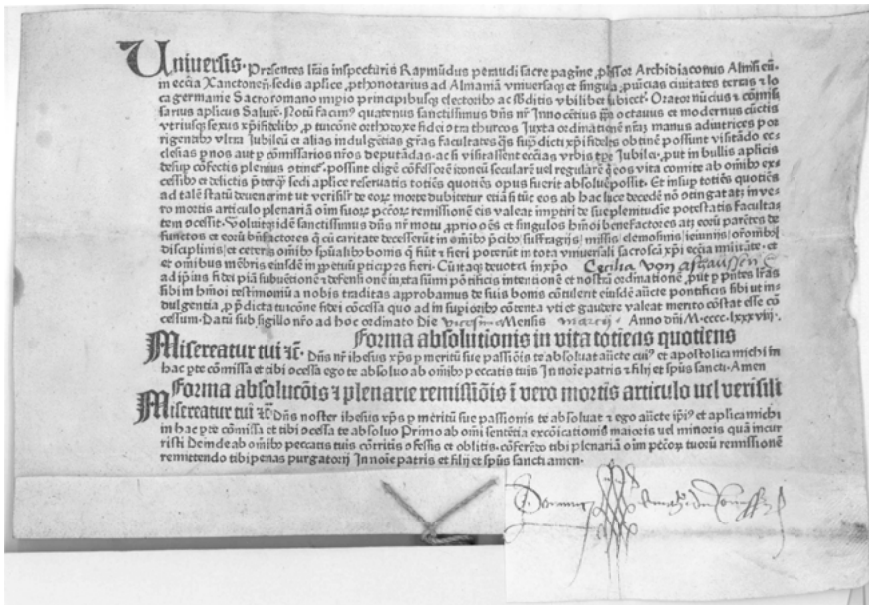 Universis. Presentes lr̄as inspecturis Raymūdus peraudi sacre pagine ꝓfessor Archidiaconus Alnisien̄.
in ecc̄ia Xanctonen̄. sedis aplice ꝓthonotarius ad Almaniā
ca germanie Sacro romano īpio principibusqꝫ electoribꝰ ac sb̄ditis vbilibet Orator nūcius ⁊ cōmis
sarius aplicus Salutē. Notū facimꝰ quatenus sanctissimus dn̄s nr̄ Innocētius octauus et modernus cūctis
vtriusqꝫ sexus xp̄ifidelibꝰ ꝓ tuicōne orthodoxe fidei ꝯtra thurcos Juxta ordinationē nr̄am manus adiutrices por
rigentibꝰ vltra Jubileū et alias indulgētias gr̄as facultates obtinē possunt visitādo ec
clesias ꝑ nos aut ꝑ cōmissarios nr̄os deputādas. ac si visitassent ecc̄ias vrbis tꝑe Jubilei. ꝓut in bullis aplicis
desuꝑ cōfectis plenius ꝯtinet᷑. possint eligē cōfessorē idoneū secularē uel regularē q̄ eos vita comite ab om̄ibꝰ ex
cessibꝰ et delictis p̄terqꝫ sedi aplice reseruatis totiēs quotiēs opus fuerit absoluē possit. Et insuꝑ totiēs quotiēs
ad talē statū deuenerint ut verisil'r de eorꝫ morte dubitetur etiā si tūc eos ab hac luce decedē nō ꝯtingat atqꝫ in ve
ro mortis articulo plenariā om̄ suorꝫ pctōrꝫ remissionē eis valeat imꝑtiri de sue plenitudīe potestatis faculta
tem ꝯcessit. Voluitqꝫ idē sanctissimus dn̄s nr̄ motu ꝓprio om̄es et singulos hm̄oi benefactores atqꝫ eorū parētes de
functos et eorū bn̄factores q̄ cū caritate decesserūt in om̄ibꝰ p̄cibꝰ suffragijs missis elemosinis ieiunijs or̄onibꝰ
disciplinis et ceteris om̄ibꝰ spūalibꝰ bonis q̄ fiūt ⁊ fieri poterūt in tota vniuersali sacrosc̄a xp̄i ecc̄ia militāte. et
et omnibus mēbris eiusdē in ꝑpetuū ꝑticipes fieri. Cū itaqꝫ deuota in xp̄o Cecilia von
ad ip̄ius fidei piā subuētionē ⁊ defensionē iuxta sūmi pōtificis intentionē et nostrā ordinationē ꝓut ꝑ p̄ntes lr̄as
sibi in hm̄oi testimoniū a nobis traditas approbamus de suis bonis cōtulerit eiusdē auc̄te pontificis sibi ut in
dulgentia ꝓ p̄dicta tuicōne fidei cōcessa quo ad in suꝑioribꝰ cōtenta vti et gaudere valeat merito cōstat esse cō
cessum. Datū sub sigillo nr̄o ad hoc ordinato Die vicesimo Mensis marcij Anno dn̄i M.cccc.lxxxviij.
Forma absolutionis in vita totiens quotiens
Misereatur tui ⁊c̄. Dn̄s nr̄ ihesus xp̄s ꝑ meritū sue passiōis te absoluat auc̄te cuiꝰ et apostolica michi in
hac ꝑte cōmissa et tibi ꝯcessa ego te absoluo ab om̄ibꝰ peccatis tuis In noīe patris ⁊ filij et spūs sancti. Amen
Forma absolucōis ⁊ plenarie remissiōis ī vero mortis articulo uel verisili
Misereatur tui ⁊c̄. Dn̄s noster ihesus xp̄s ꝑ meritū sue passionis te absoluat ⁊ ego auc̄te ip̄iꝰ et aplica michi
in hac ꝑte cōmissa et tibi ꝯcessa te absoluo Primo ab om̄i sentētia excōicationis maioris uel minoris quā incur
risti Deinde ab om̄ibꝰ peccatis tuis cōtritis ꝯfessis et oblitis. cōferēdo tibi plenariā om̄ pctōrꝫ tuorū remissionē
remittendo tibi penas purgatorij In noīe patris et filij et spūs sancti amen.